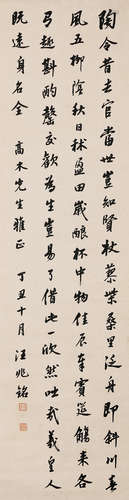 陶令昔去官當世豈知賢杖藜柴桑里泛舟即斜川春
風五柳陰秋日秫盈田歲釀杯中物佳辰奉賓筵觴來各
趣斟酌罄交歡為生豈易了借此一欣然咄哉羲皇人
遠身名全 高木先生雅正 丁丑十月 汪兆銘